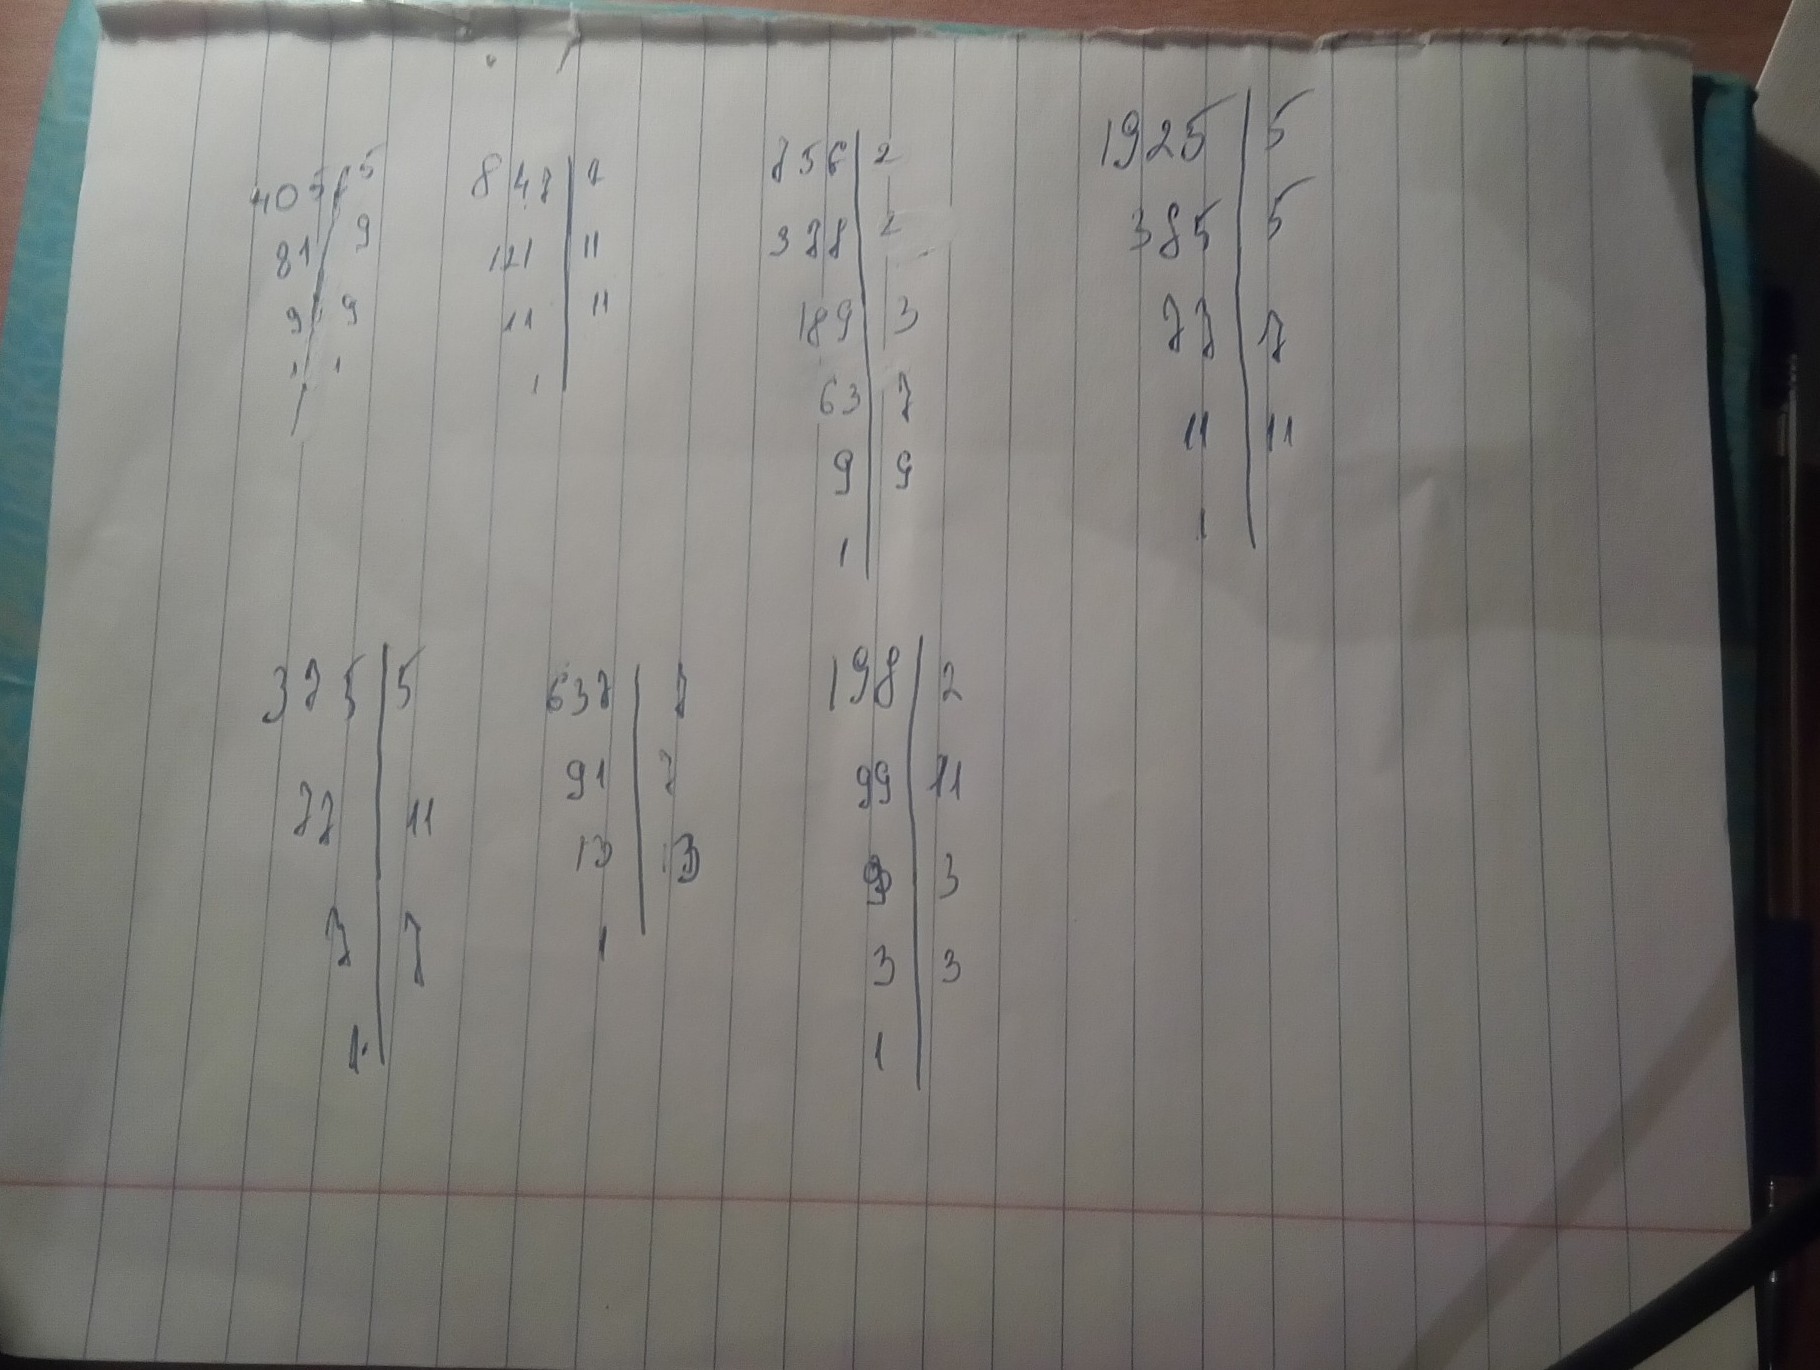 405 5
81 9
9 9
1 1
847 | 7
121 | 11
11 | 11
1
756 | 2
378 | 2
189 | 3
63 | 7
9 | 9
1
1925 | 5
385 | 5
77 | 7
11 | 11
1
375 | 5
77 | 11
7 | 7
1
637 | 7
91 | 7
13 | 13
1
198 | 2
99 | 11
9 | 3
3 | 3
1